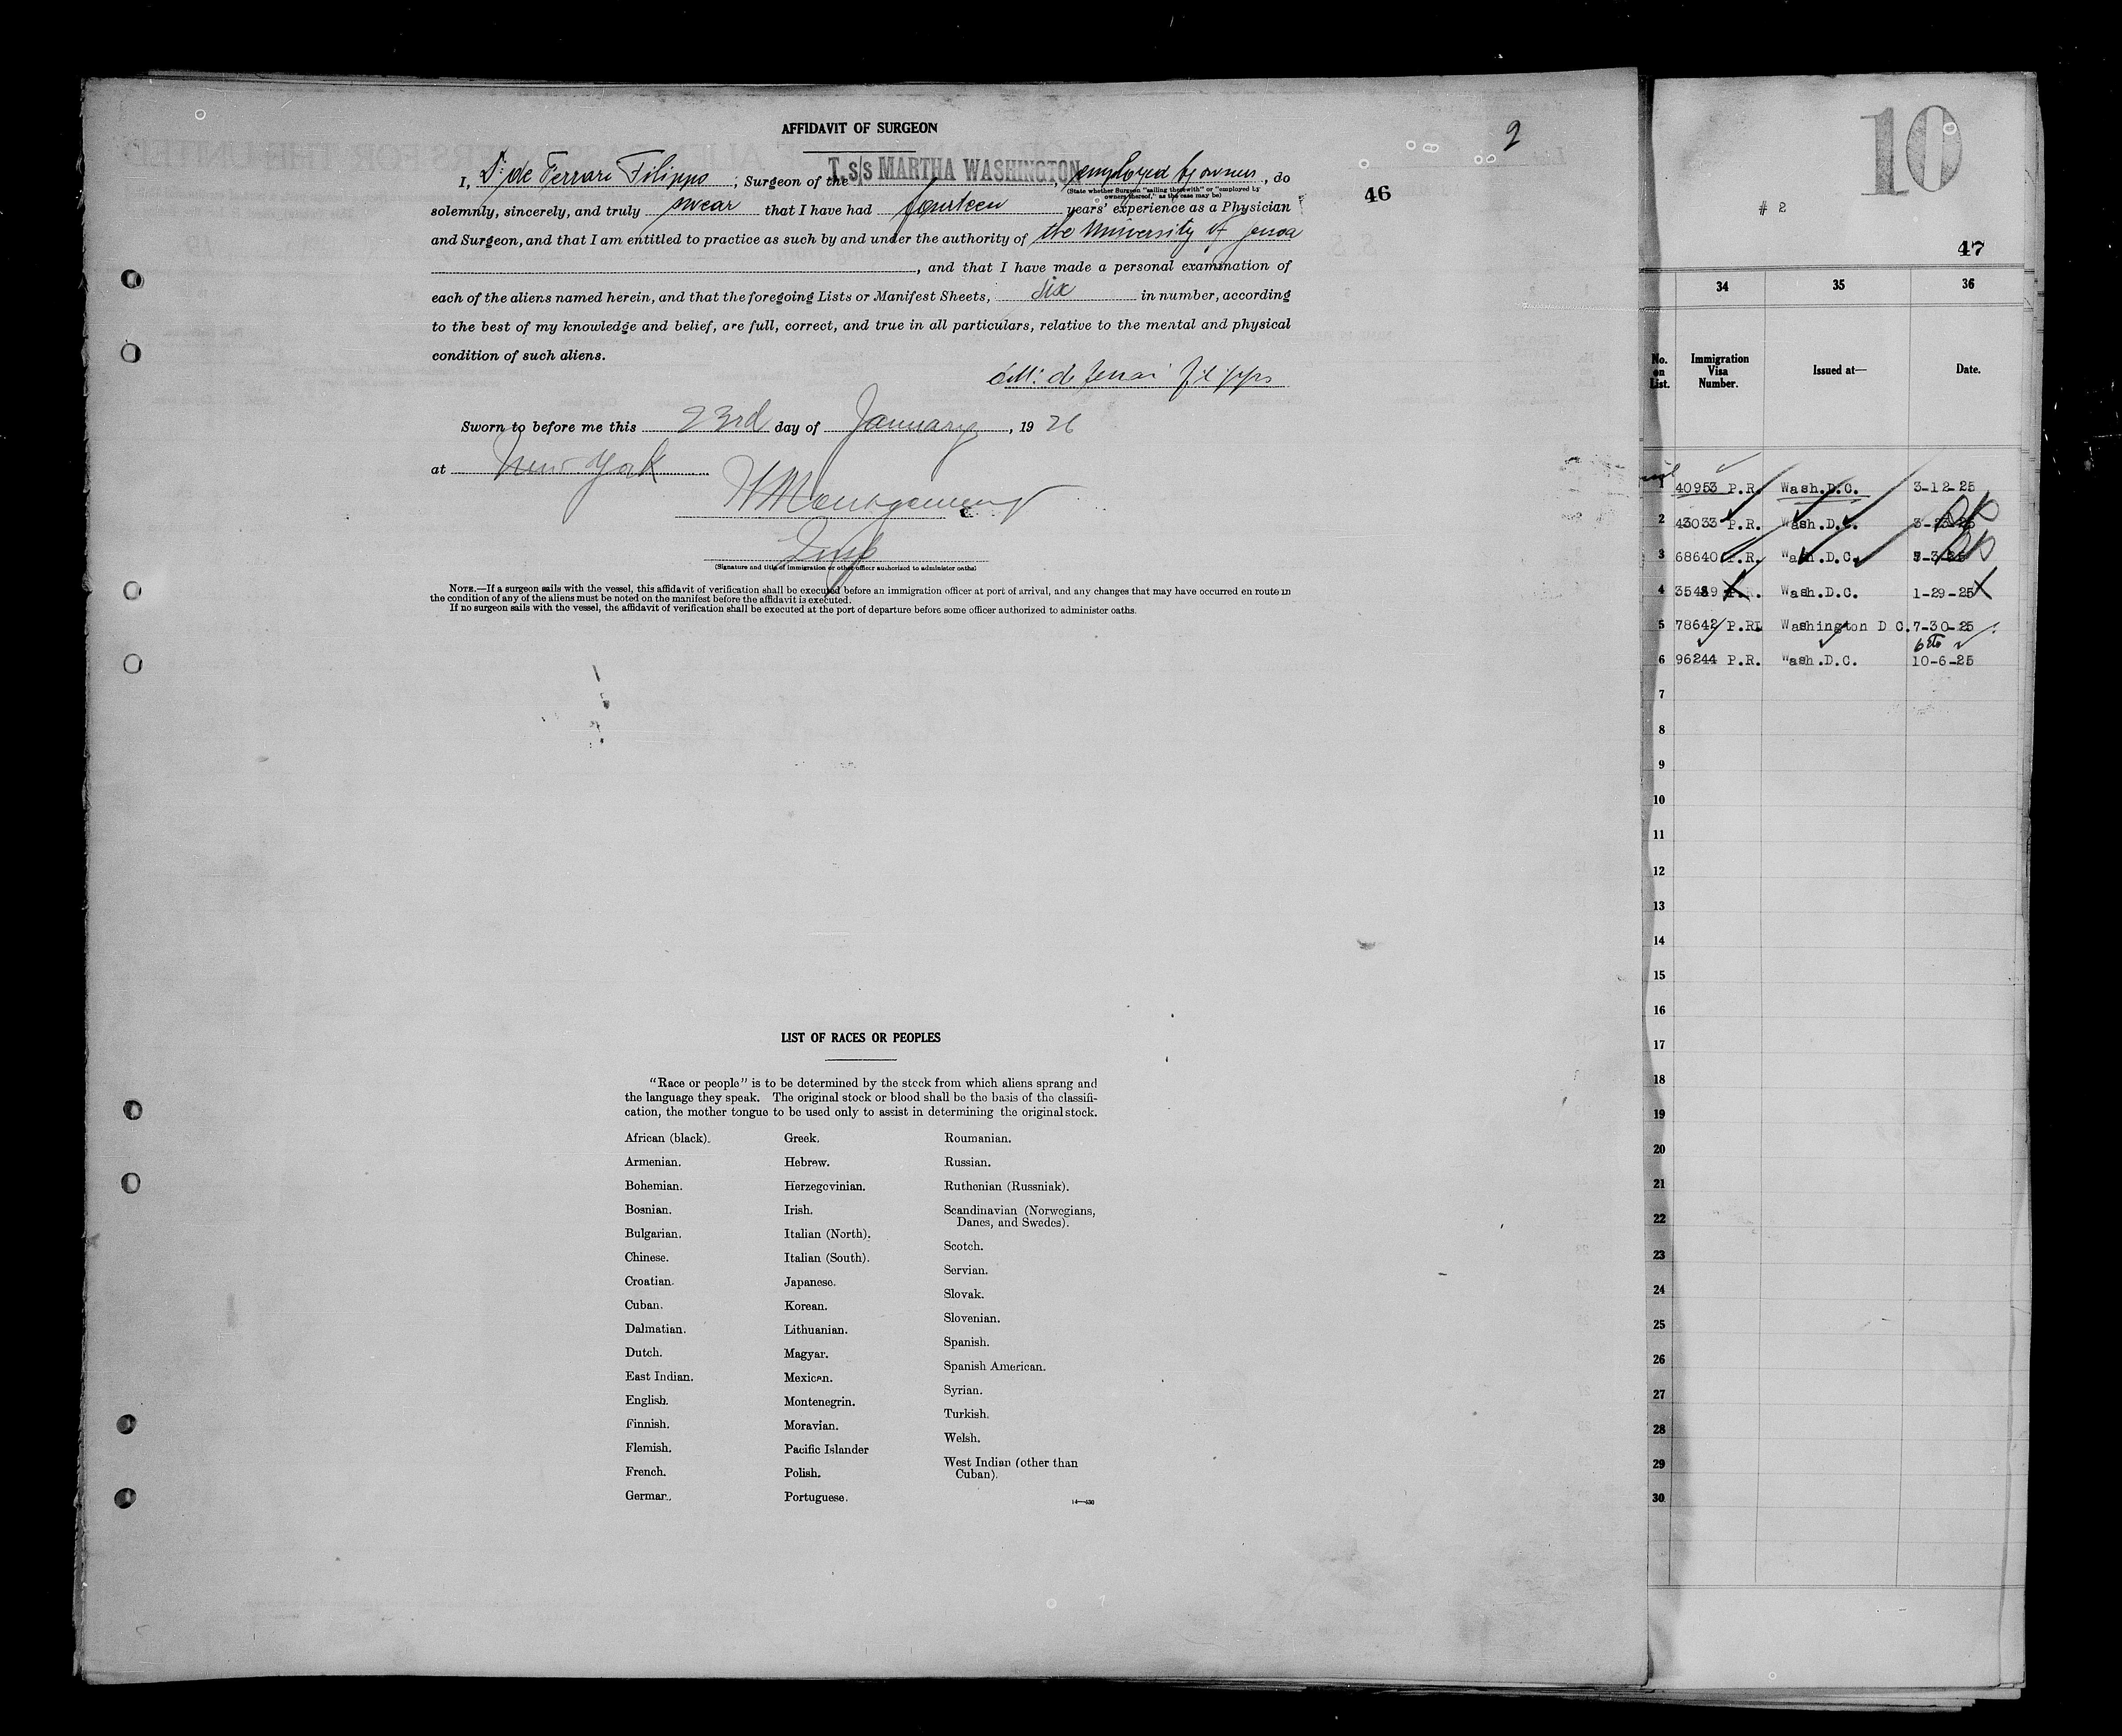 AFFIDAVIT OF SURGEON
2
I, Dr. de Ferrari Filippo, Surgeon of the T. s/s MARTHA WASHINGTON, employed by owners, do
(State whether Surgeon "sailing therewith" or "employed by
owners thereof," as the case may be)
46
solemnly, sincerely, and truly swear that I have had fourteen years' experience as a Physician
and Surgeon, and that I am entitled to practice as such by and under the authority of the University of Genoa
, and that I have made a personal examination of
each of the aliens named herein, and that the foregoing Lists or Manifest Sheets, six in number, according
to the best of my knowledge and belief, are full, correct, and true in all particulars, relative to the mental and physical
condition of such aliens.
de Ferrari Filippo
Sworn to before me this 23rd day of January, 1926
at New York
H Montgomery
Insp
(Signature and title of immigration or other officer authorized to administer oaths)
NOTE.—If a surgeon sails with the vessel, this affidavit of verification shall be executed before an immigration officer at port of arrival, and any changes that may have occurred en route in
the condition of any of the aliens must be noted on the manifest before the affidavit is executed.
If no surgeon sails with the vessel, the affidavit of verification shall be executed at the port of departure before some officer authorized to administer oaths.
LIST OF RACES OR PEOPLES
"Race or people" is to be determined by the stock from which aliens sprang and
the language they speak. The original stock or blood shall be the basis of the classifi-
cation, the mother tongue to be used only to assist in determining the original stock.
African (black).
Armenian.
Bohemian.
Bosnian.
Bulgarian.
Chinese.
Croatian.
Cuban.
Dalmatian.
Dutch.
East Indian.
English.
Finnish.
Flemish.
French.
German.
Greek.
Hebrew.
Herzegovinian.
Irish.
Italian (North).
Italian (South).
Japanese.
Korean.
Lithuanian.
Magyar.
Mexican.
Montenegrin.
Moravian.
Pacific Islander
Polish.
Portuguese.
Roumanian.
Russian.
Ruthenian (Russniak).
Scandinavian (Norwegians,
Danes, and Swedes).
Scotch.
Servian.
Slovak.
Slovenian.
Spanish.
Spanish American.
Syrian.
Turkish.
Welsh.
West Indian (other than
Cuban).
14—430
10
# 2
47
34 35 36
No. on List. Immigration Visa Number. Issued at— Date.
1 40953 P.R. Wash.D.C. 3-12-25
2 43033 P.R. Wash.D.C. 3-23-25
3 68640 P.R. Wash.D.C.
4 35489 P.R. Wash.D.C. 1-29-25
5 78642 P.R. Washington D C. 7-30-25
6 96244 P.R. Wash.D.C. 10-6-25
7
8
9
10
11
12
13
14
15
16
17
18
19
20
21
22
23
24
25
26
27
28
29
30